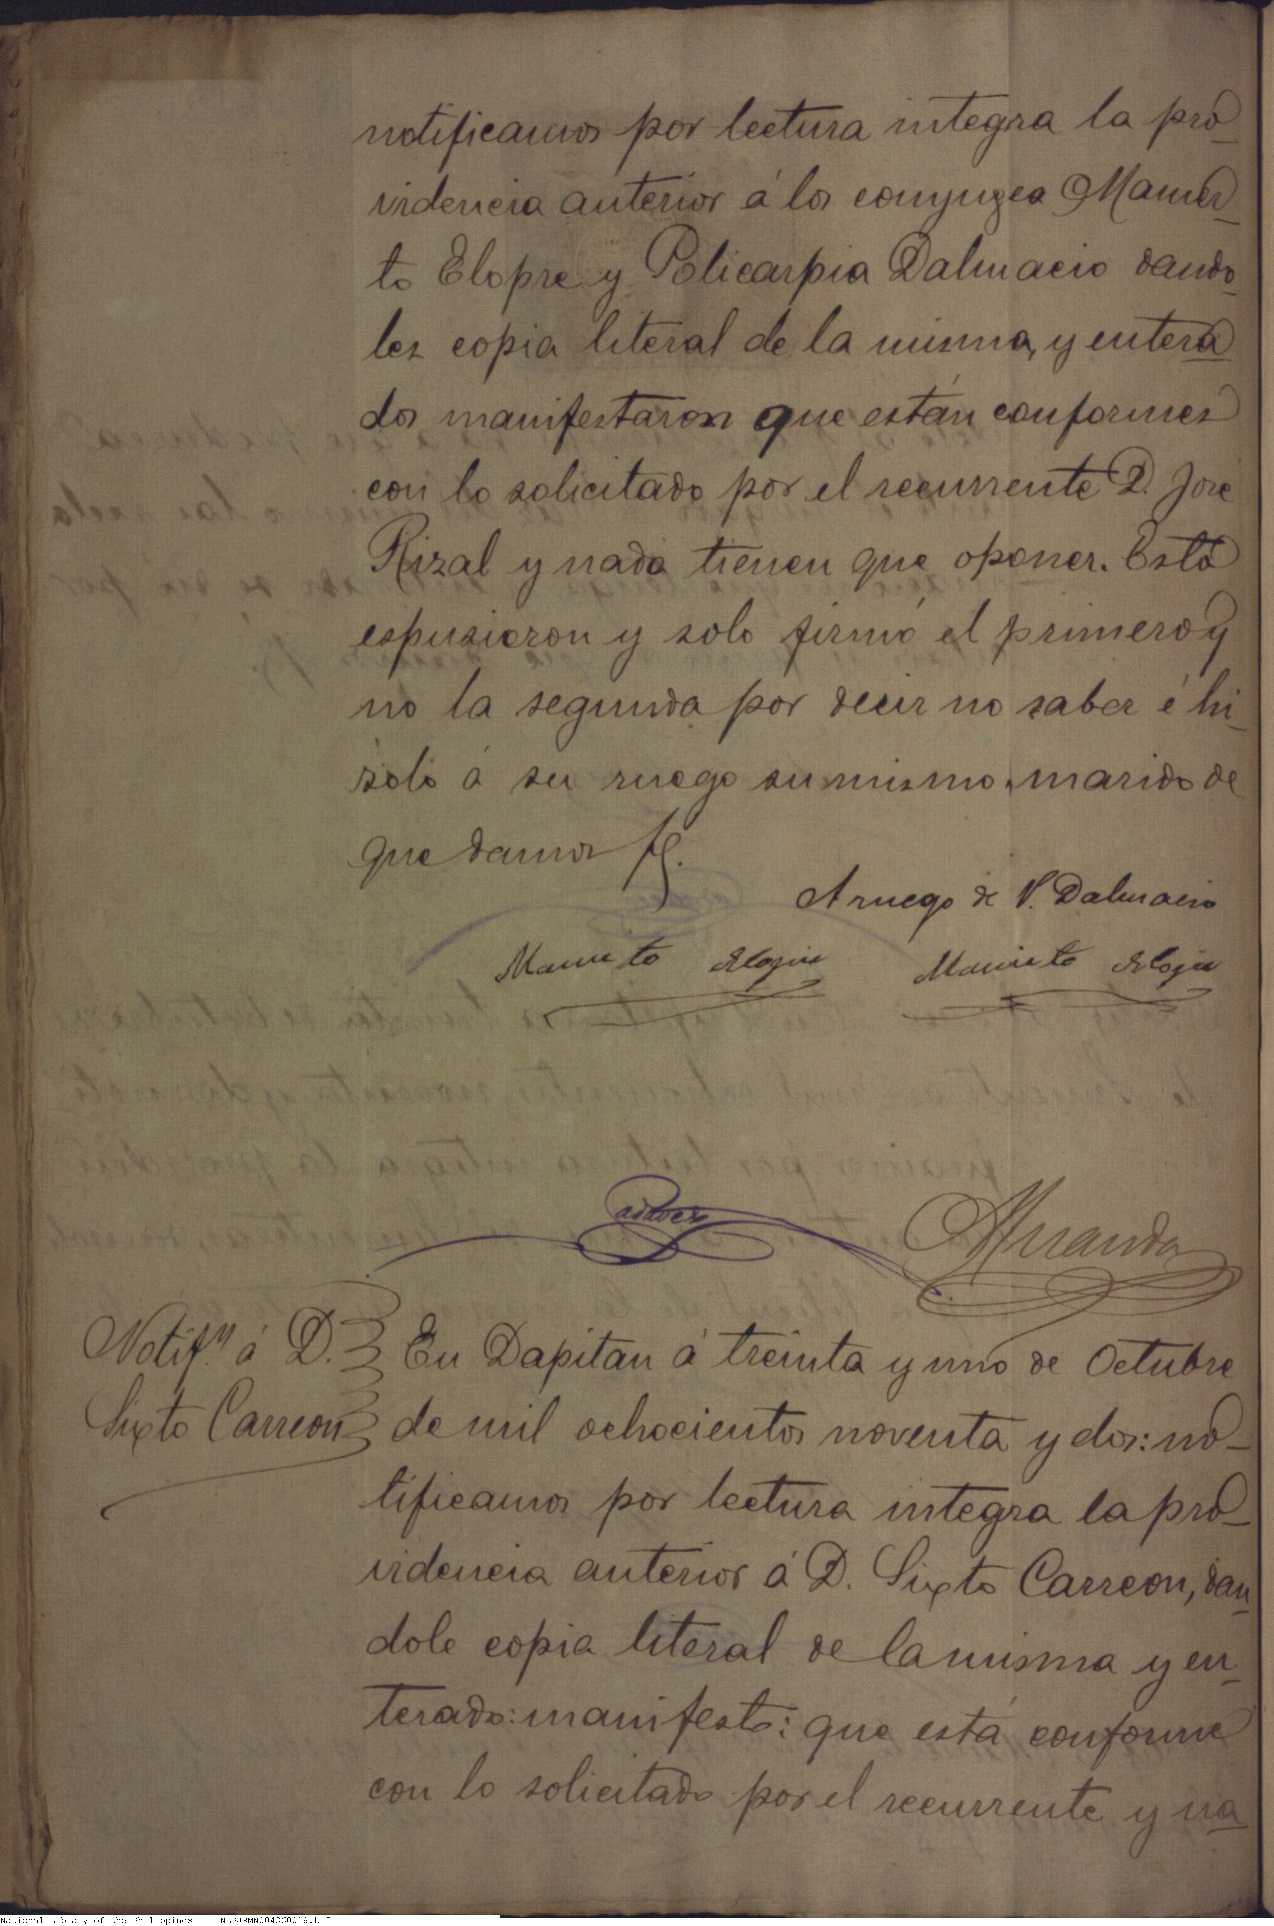 notificamos por lectura integra la pro-
videncia anterior á los conyuges Mamer-
to Elopre y Policarpia Dalmacio dando-
les copia literal de la misma, y entera-
dos manifestaron que están conformes
con lo solicitado por el recurrente D. José
Rizal y nada tienen que oponer. Esto
espusieron y solo firmó el primero y
no la segunda por decir no saber é hi-
zolo á su ruego su mismo marido de
que damos fé.
A ruego de P. Dalmacio
Mamerto Elopre Mamerto Elopre
Miranda
Notifn. á D.
Sixto Carreon
En Dapitan á treinta y uno de Octubre
de mil ochocientos noventa y dos: no-
tificamos por lectura integra la pro-
videncia anterior á D. Sixto Carreon, dan-
dole copia literal de la misma y en-
terado: manifesto: que está conforme
con lo solicitado por el recurrente y na-
National Library of the Philippines